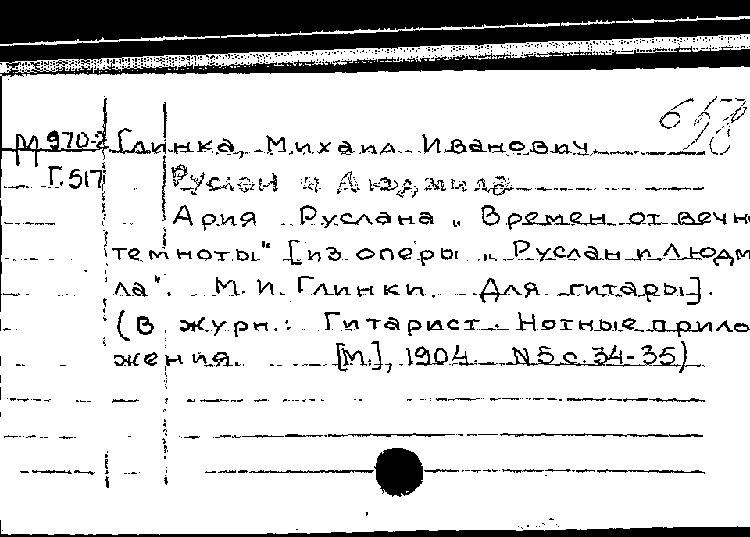 658
М 970-2 Глинка, Михаил Иванович
Г.517 Руслан и Людмила
Ария Руслана „Времен от вечн
темноты" [из оперы „Руслан и Людм
ла". М.И. Глинки. Для гитары].
(В журн.: Гитарист. Нотные прило
жения. [М.], 1904 N5 с. 34-35)